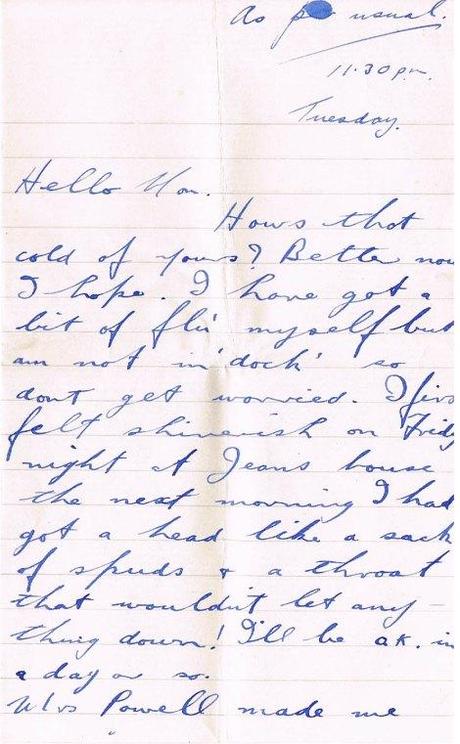 As usual.
11.30 p.m.
Tuesday.
Hello Mon.
Hows that
cold of yours? Better now
I hope. I have got a
bit of flu' myself but
am not in 'dock' so
dont get worried. I firs
felt shiverish on Frid
night at Jeans house
the next morning I had
got a head like a sack
of spuds & a throat
that wouldn't let any-
thing down! I'll be o.k. in
a day or so.
Mrs Powell made me